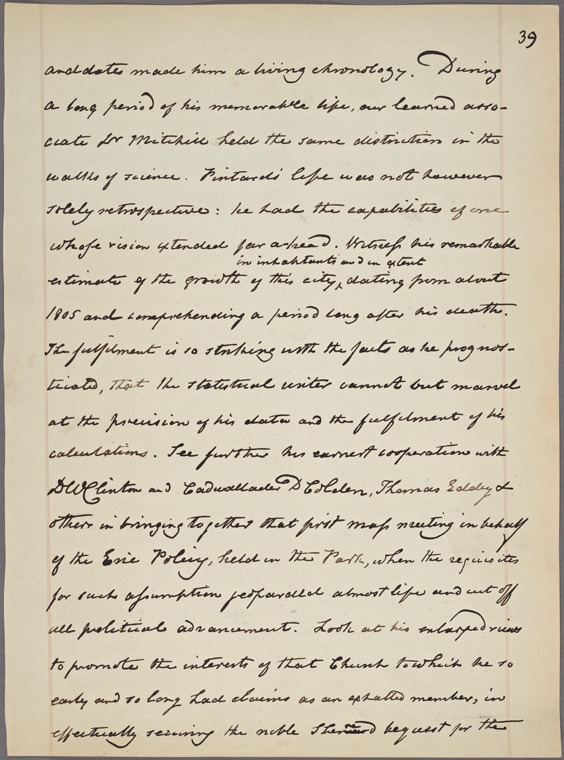 39
and dates made him a living chronology. During
a long period of his memorable life, our learned asso-
ciate Dr Mitchill held the same distinction in the
walks of science. Pintard's life was not however
solely retrospective: he had the capabilities of one
whose vision extended far ahead. Witness his remarkable
in inhabitants and in extent
estimate of the growth of this city, dating from about
1805 and comprehending a period long after his death.
The fulfilment is so striking with the facts as he prognos-
ticated, that the statistical writer cannot but marvel
at the precision of his data and the fulfilment of his
calculations. See further his earnest cooperation with
D W Clinton and Cadwallader D Colden, Thomas Eddy &
others in bringing together that first mass meeting in behalf
of the Erie Policy, held in the Park, when the requisites
for such assumption jeoparded almost life and cut off
all political advancement. Look at his enlarged views
to promote the interests of that Church to which he so
early and so long had claims as an exalted member, in
effectually securing the noble Sherred bequest for the